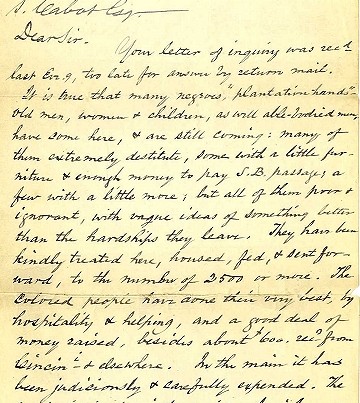 S. Cabot Esq.
Dear Sir.
Your letter of inquiry was recd
last Evg, two late for answer by return mail.
It is true that many negroes, "plantation hands"-
old men, women & children, as well able-bodied men,
have come here, & are still coming: many of
them extremely destitute, some with a little fur-
niture & enough money to pay S.B. passage, a
few with a little more; but all of them poor &
ignorant, with vague ideas of something better
than the hardships they leave. They have been
kindly treated here, housed, fed, & sent for-
ward, to the number of 2500 or more. The
Colored people have done their very best, by
hospitality, & helping, and a good deal of
money raised, besides about $600. recd from
Cincinti & elsewhere. In the main it has
been judiciously & carefully expended. The